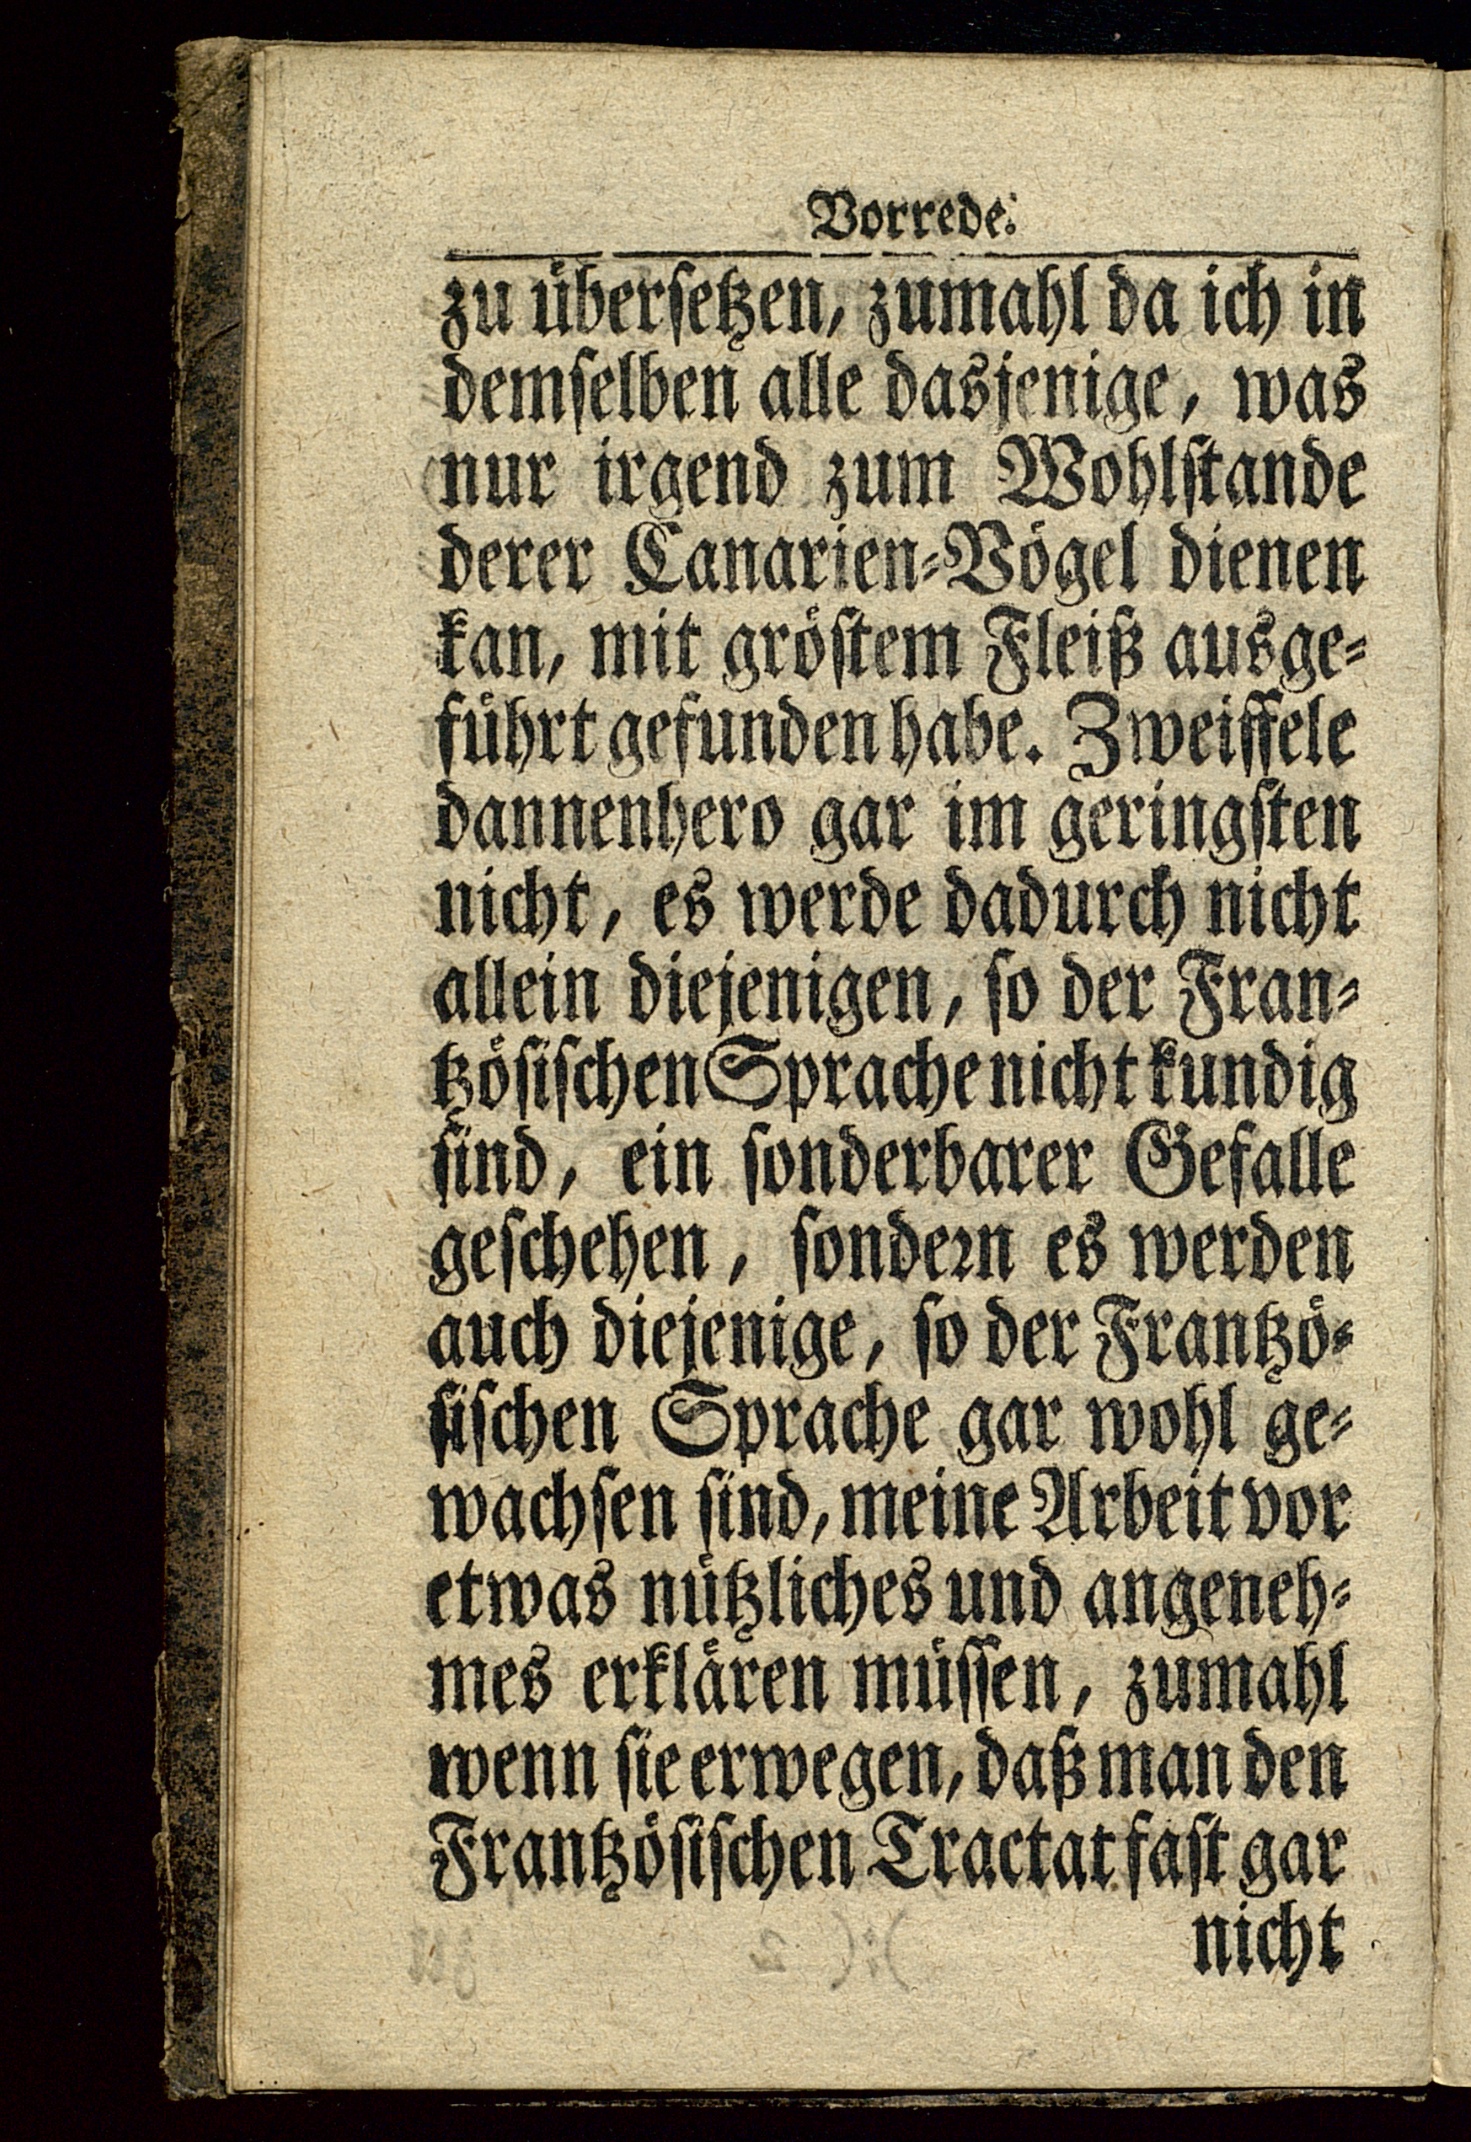 Vorrede.
zu überſetzen, zumahl da ich in
demſelben alle dasjenige, was
nur irgend zum Wohlſtande
derer Canarien-Vögel dienen
kan, mit gröſtem Fleiß ausge-
führt gefunden habe. Zweiffele
dannenhero gar im geringſten
nicht, es werde dadurch nicht
allein diejenigen, ſo der Fran-
tzöſiſchen Sprache nicht kundig
ſind, ein ſonderbarer Gefalle
geſchehen, ſondeꝛn es werden
auch diejenige, ſo der Frantzö-
ſiſchen Sprache gar wohl ge-
wachſen ſind, meine Arbeit vor
etwas nützliches und angeneh-
mes erklären müſſen, zumahl
wenn ſie erwegen, daß man den
Frantzöſiſchen Tractat faſt gar
nicht